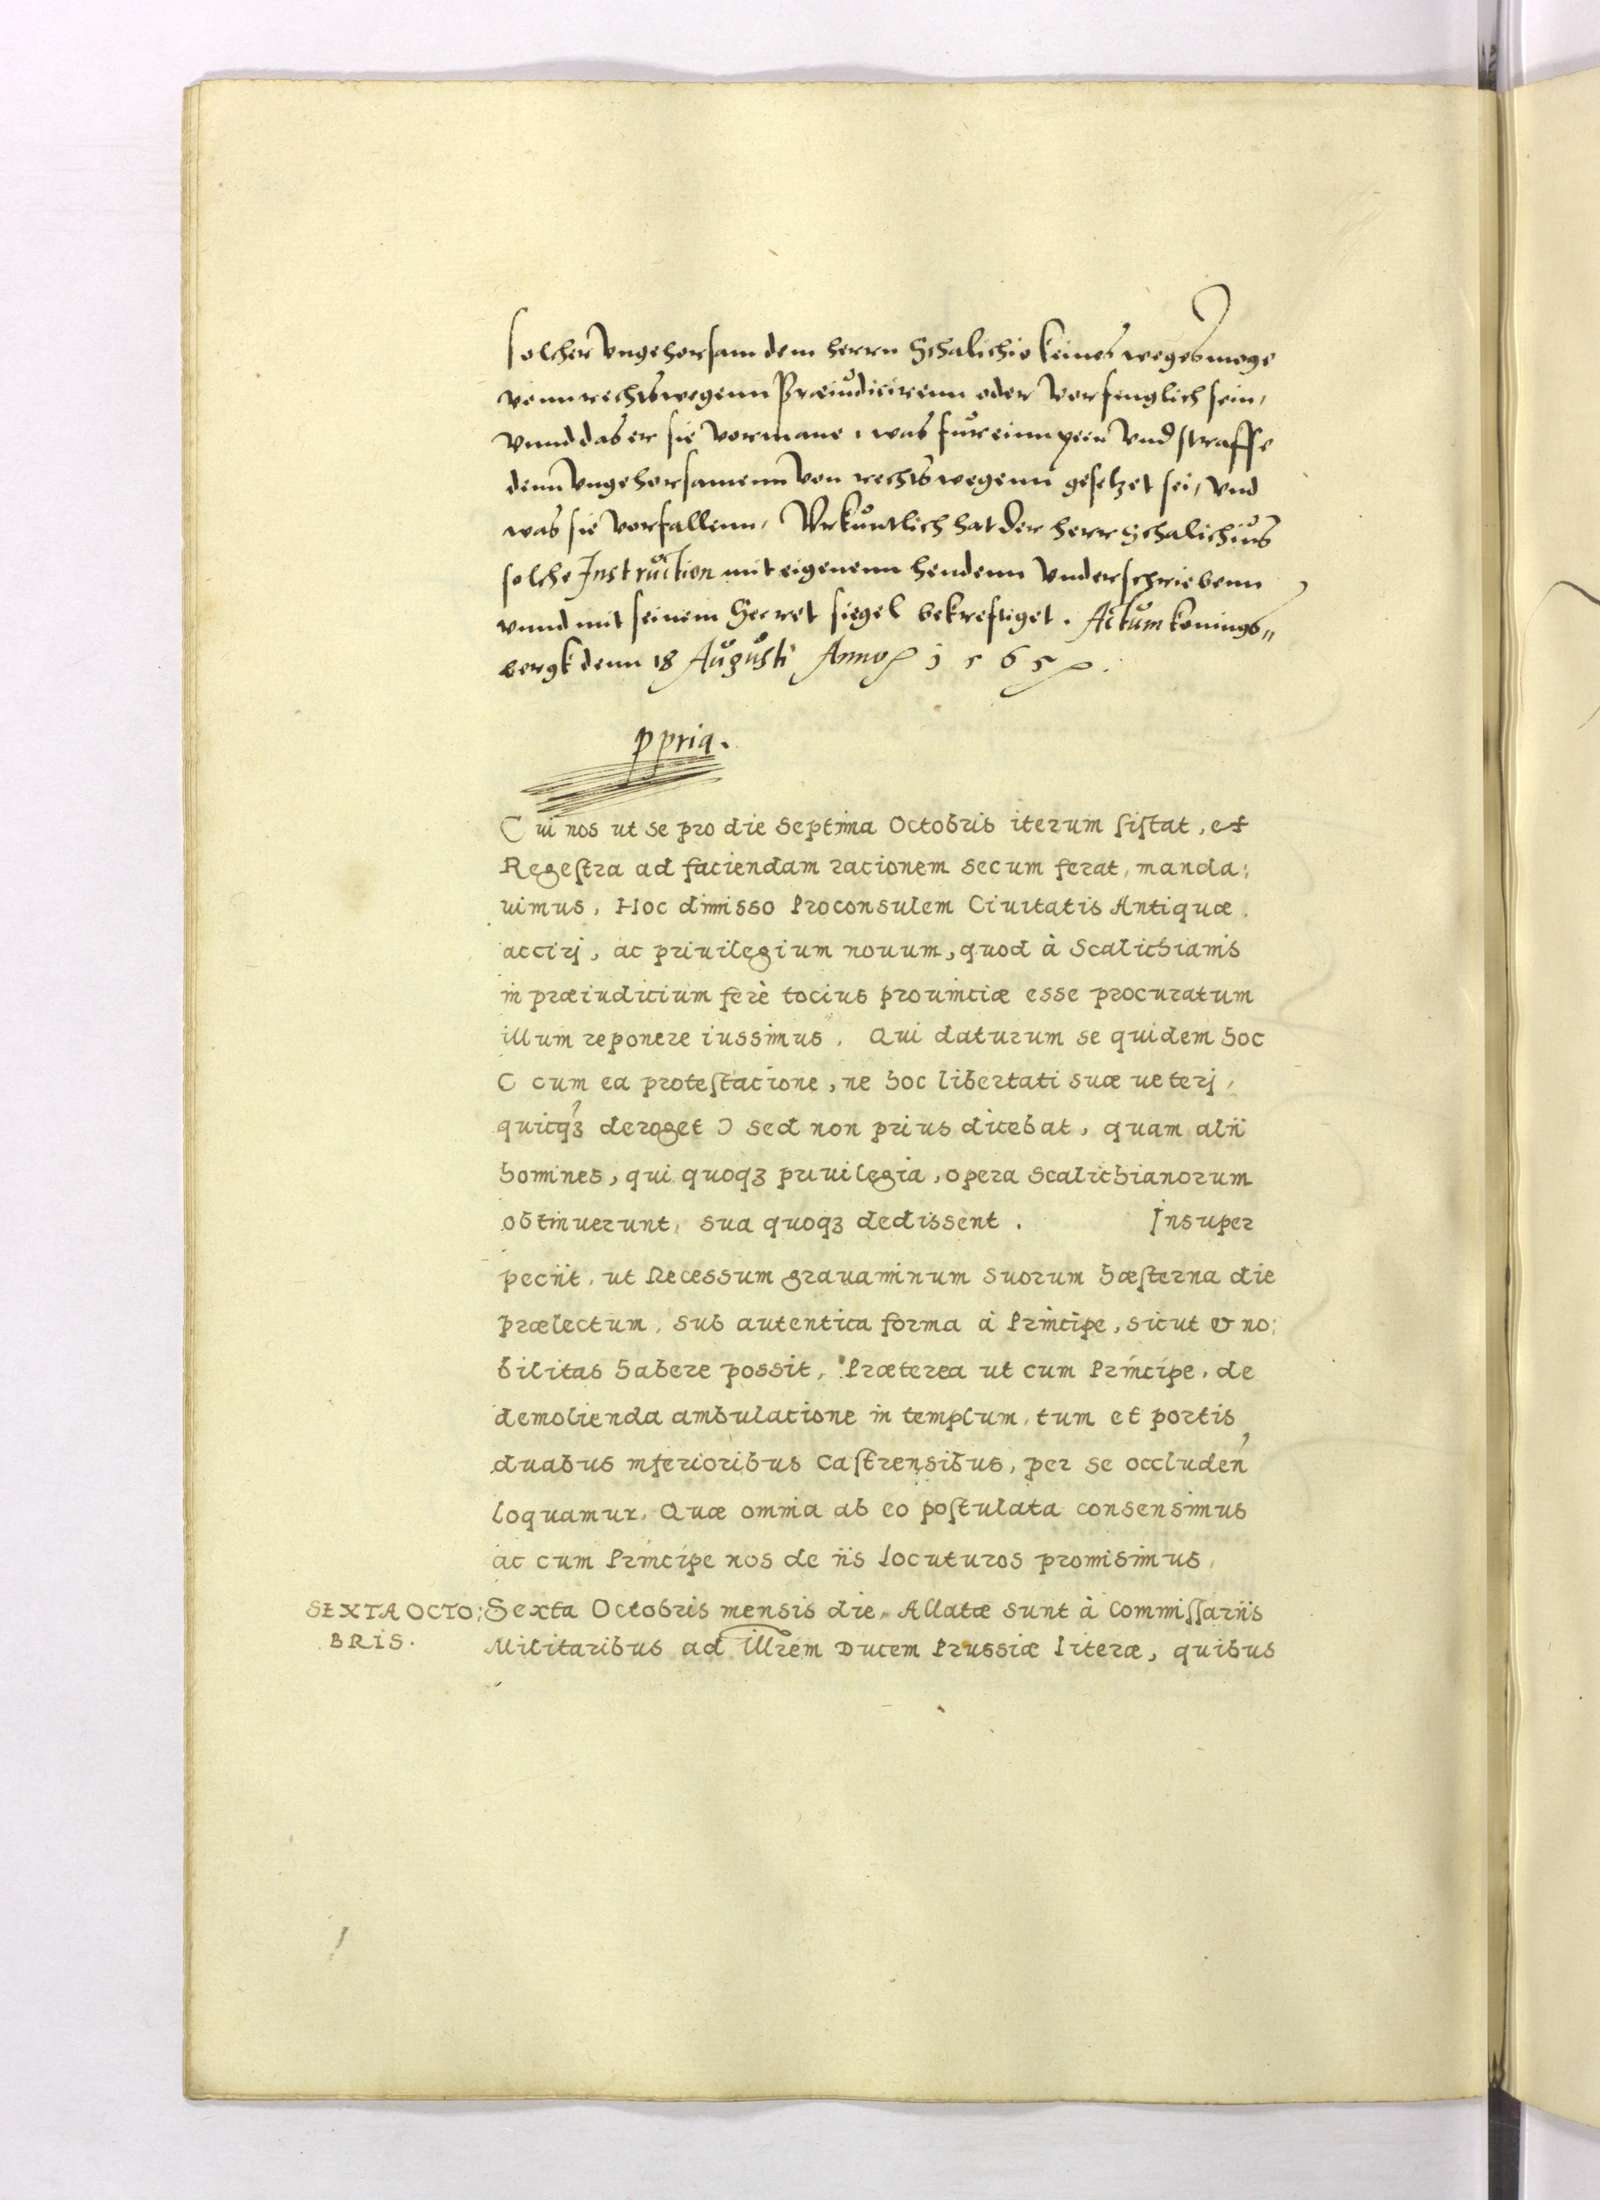 solcher Vngehorsam dem herrn Schalichio keines weges moge
vonn rechts wegenn Præiudicirenn oder Vorfenglich sein,
vnnd das er sie Vormane, was für einn peen Vnd straffe
denn Vngehorsamenn Von rechts wegenn gesetzet sei, Vnd
was sie Vorfallenn, Vrkuntlich hat der herr Schalichius
solche Instruction mit eigenenn hendenn Vnderschriebenn
vnnd mit seinem Secret siegel bekreftiget. Actum konings„
bergk denn 18 Augusti Anno 1565.
ppria.
Cui nos ut se pro die Septima Octobris iterum sistat, et
Regestra ad faciendam racionem secum ferat, manda:
uimus, Hoc dimisso Proconsulem Ciuitatis Antiquæ
accirj, ac priuilegium nouum, quod à Scalichianis
in præiuditium ferè tocius prouintiæ esse procuratum
illum reponere iussimus. Qui daturum se quidem hoc
( cum ea protestacione, ne hoc libertati suæ ueterj,
quicqȝ deroget ) sed non prius dicebat, quam alii
homines, qui quoqȝ priuilegia, opera Scalichianorum
obtinuerunt, sua quoqȝ dedissent. Insuper
peciit, ut Recessum grauaminum suorum hæsterna die
prælectum, sub autentica forma à Principe, sicut & no:
bilitas habere possit, Præterea ut cum Principe, de
demolienda ambulacione in templum, tum et portis
duabus inferioribus Castrensibus, per se occluden
loquamur, Quæ omnia ab eo postulata consensimus
ac cum Principe nos de iis locuturos promisimus,
SEXTA OCTO: Sexta Octobris mensis die, Allatæ sunt à Commissariis
BRIS. Militaribus ad Illrem Ducem Prussiæ literæ, quibus